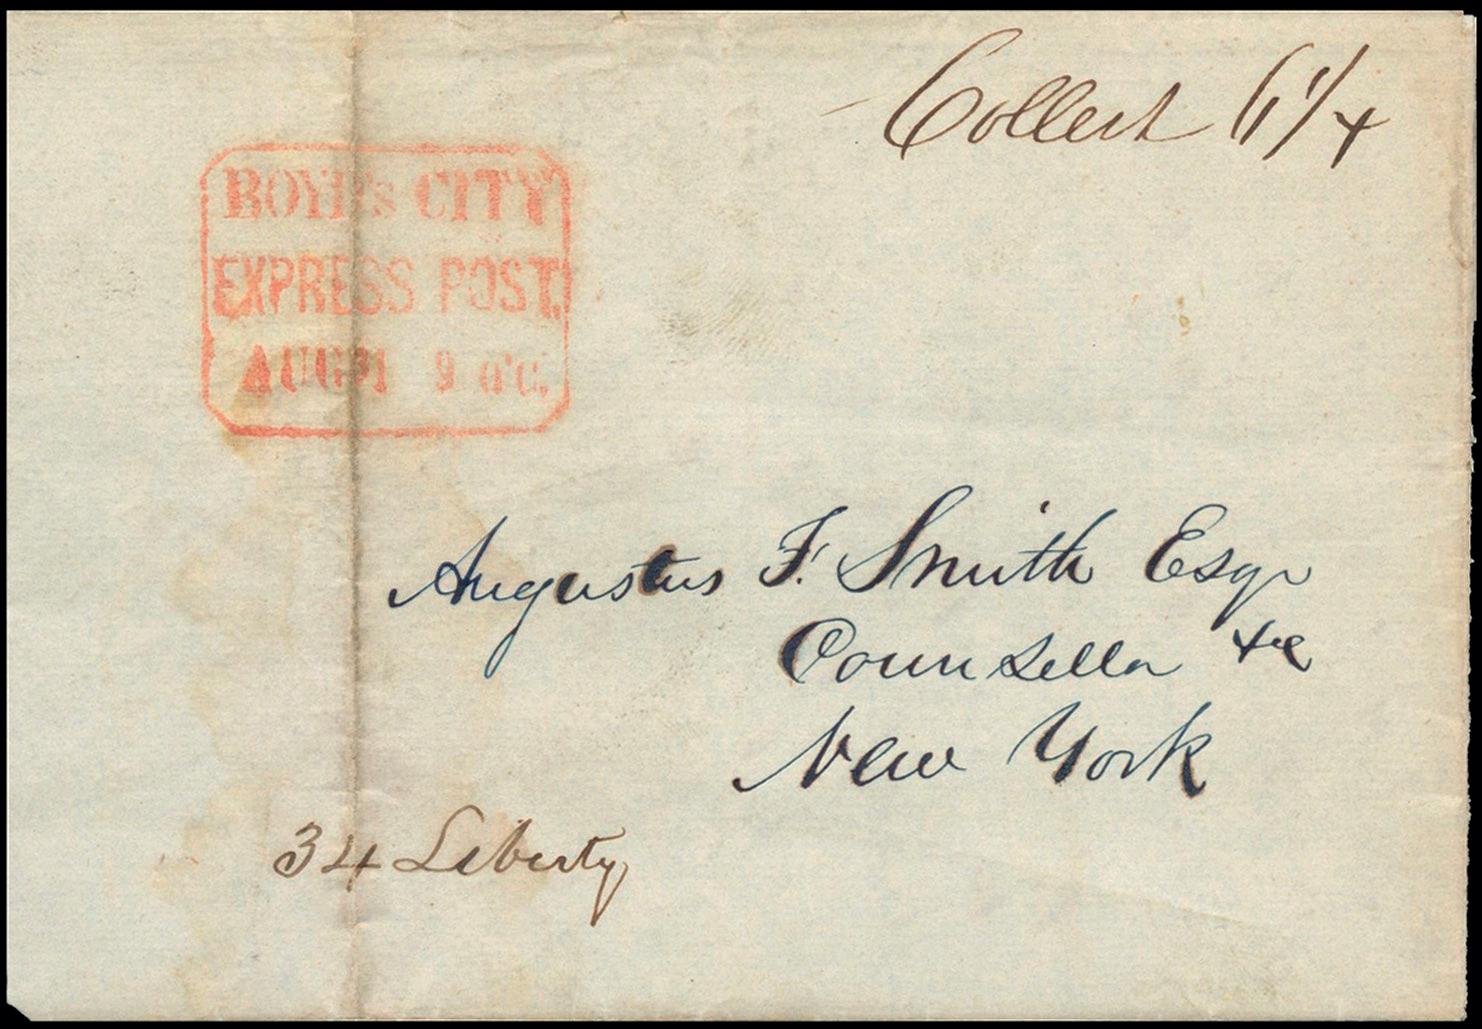 Collect 6 1/4
BOYD's CITY
EXPRESS POST.
AUG 21 9 o'c.
Augustus F. Smith Esqr
Counsellor &c
New York
34 Liberty